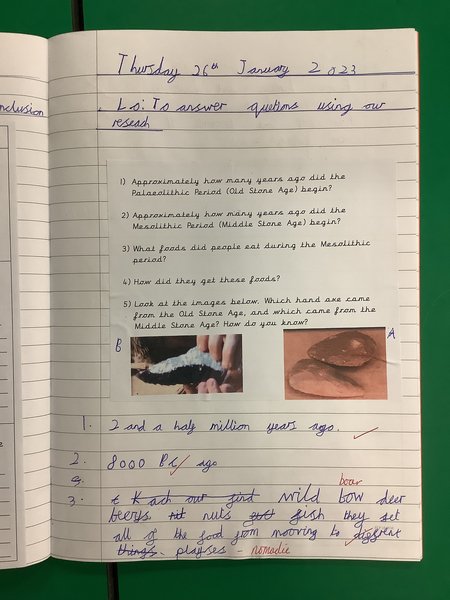 Thursday 26th January 2023
nclusion
Lo: To answer quetions using our
reseach
1) Approximately how many years ago did the
Palaeolithic Period (Old Stone Age) begin?
2) Approximately how many years ago did the
Mesolithic Period (Middle Stone Age) begin?
3) What foods did people eat during the Mesolithic
period?
4) How did they get these foods?
5) Look at the images below. Which hand axe came
from the Old Stone Age, and which came from the
Middle Stone Age? How do you know?
B
A
1. 2 and a half million years ago.
2. 8000 BC ago
boar
3. wild bow deer
nuts fish they get
all of the food from mooving to
things. - nomadic